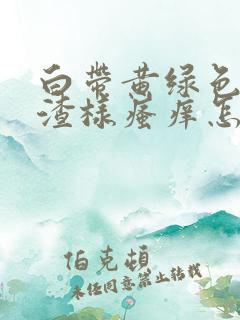 白带黄绿色
渣样瘙痒怎
伯克顿
未经同意禁止转载